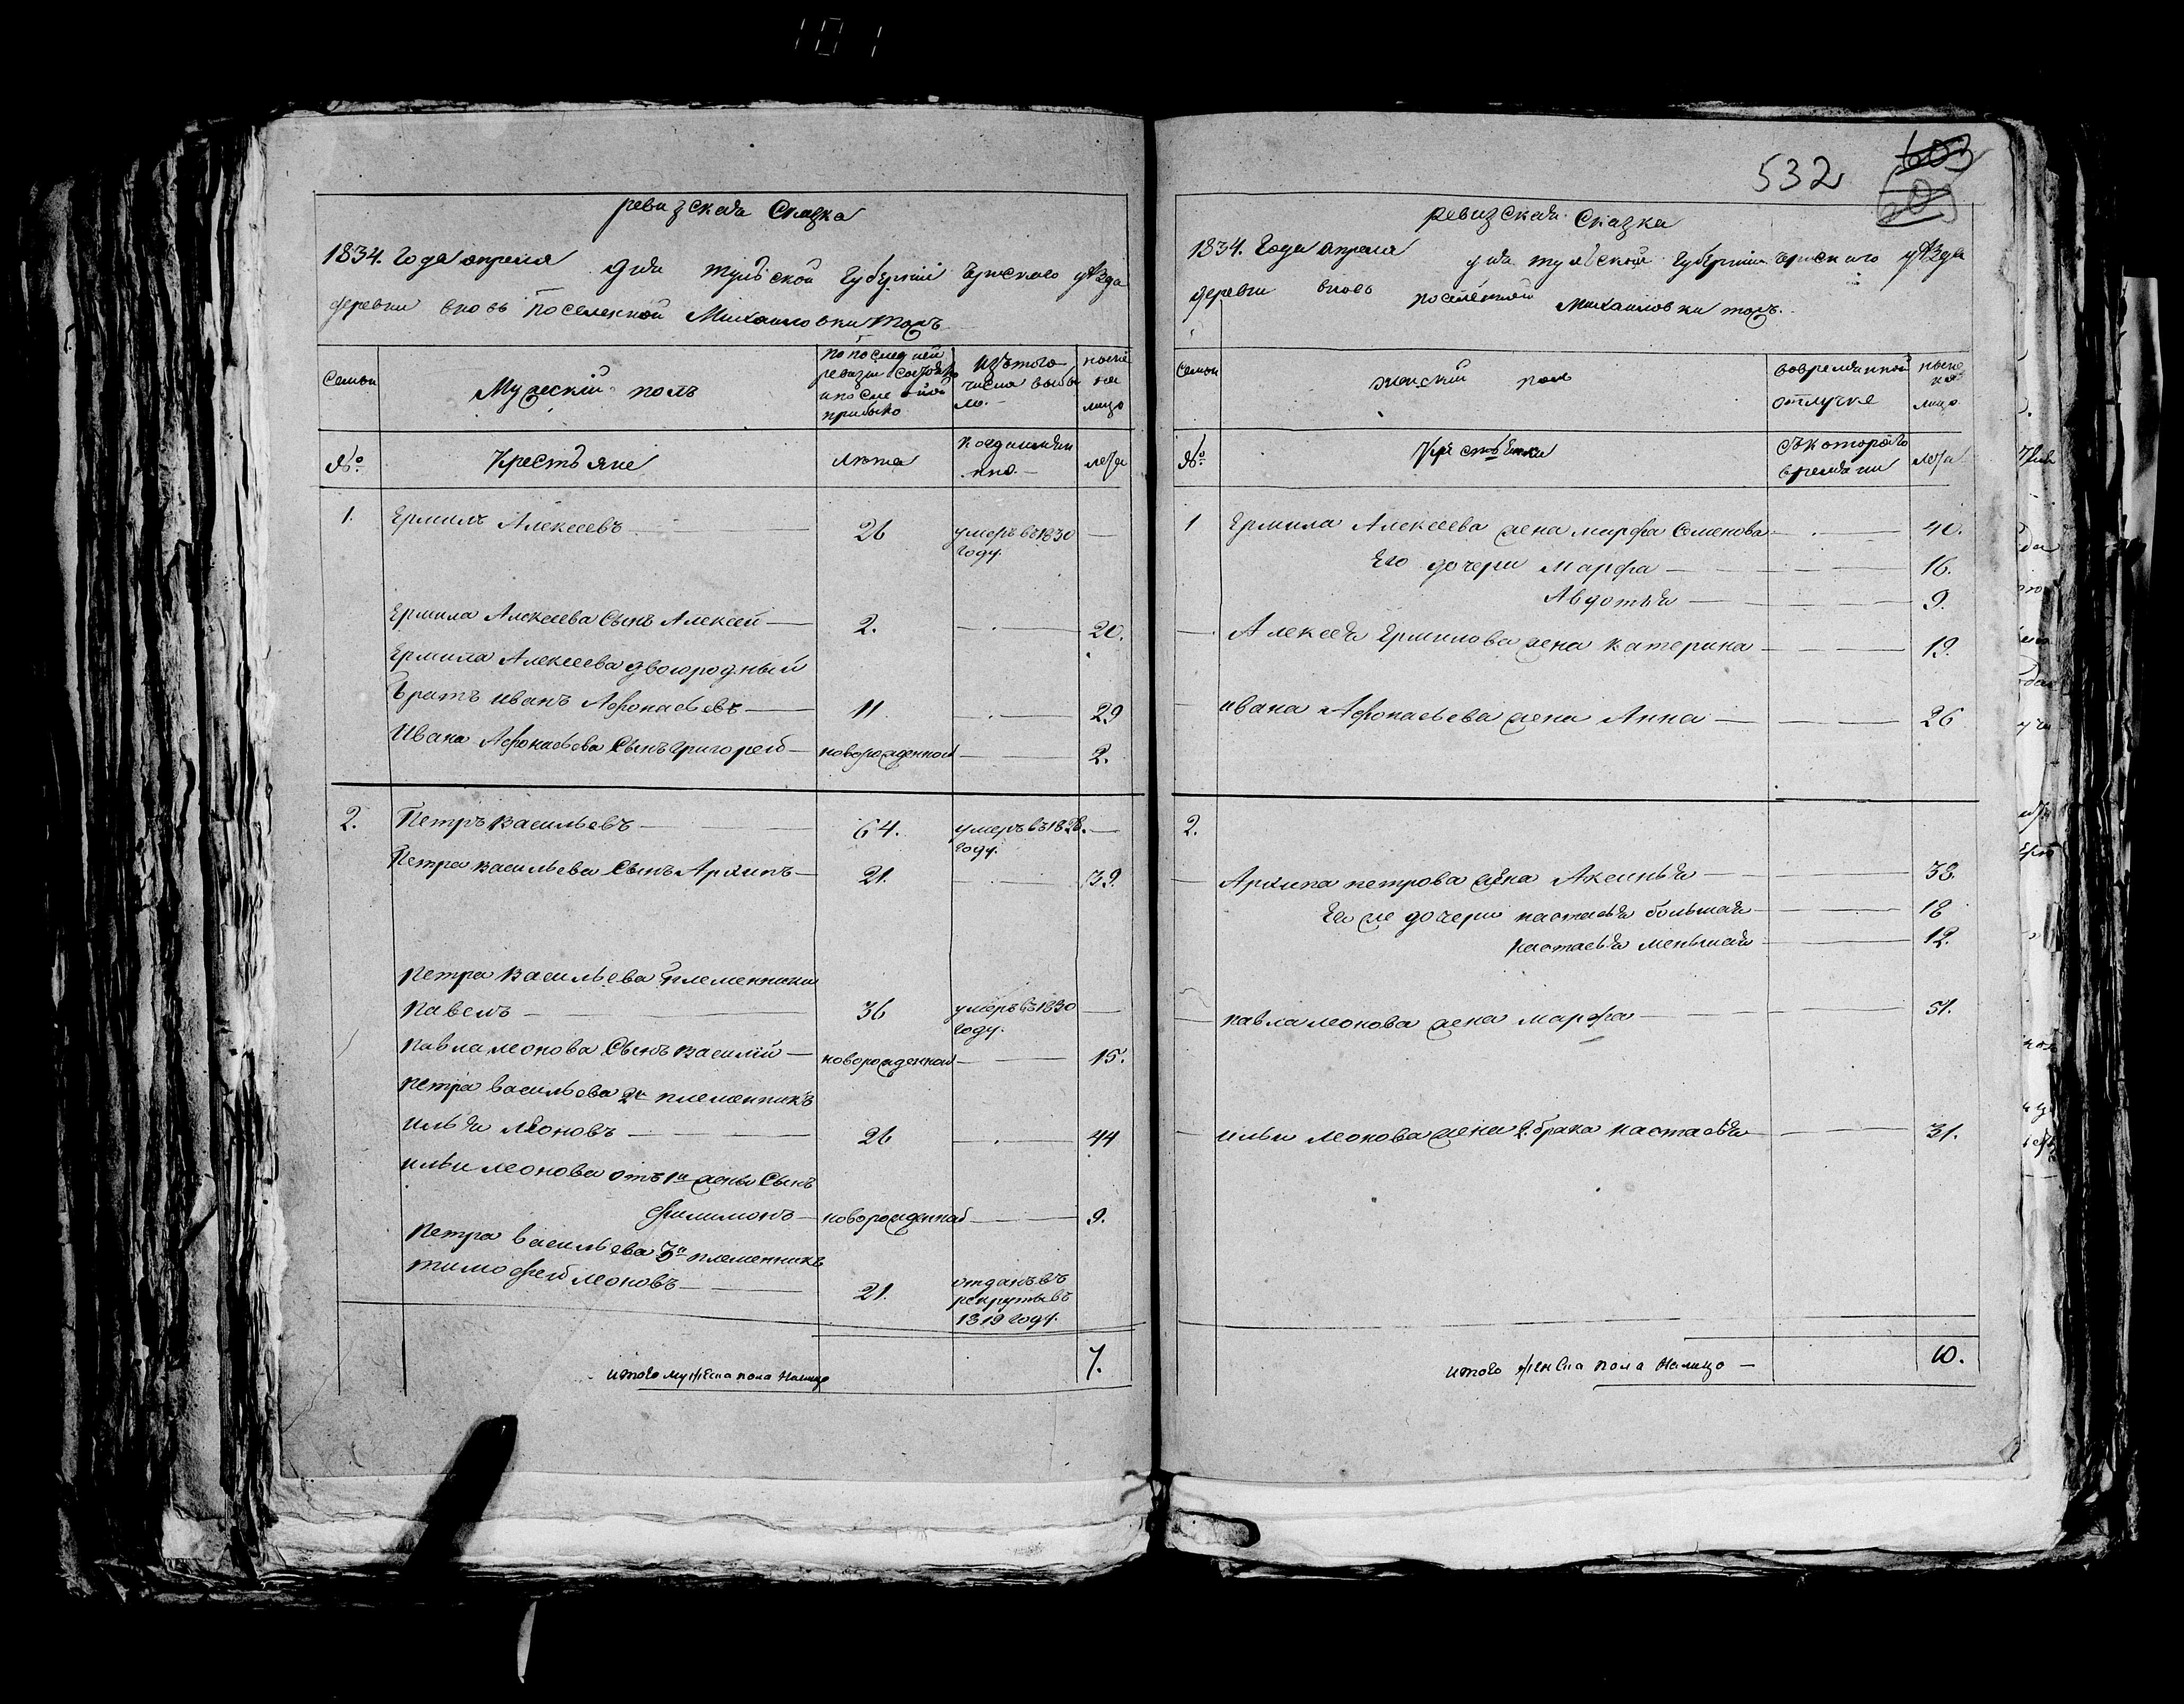 101
ревизская Сказка
1834. Года апреля дня тульской Губернии Чернского уѣзда
деревни вновь поселенной Михаиловки тожъ
Семьи
Мужескій полъ
по последней ревизии состояло и после оной прибыло
Изътого числа выбыло.
ныне на лицо
№
Крестьяне
лета
лета
1. Ермилъ Алексеевъ 26 умеръ въ 1830 году.
Ермила Алексеева Сынъ Алексей 2. 20.
Ермила Алексеева двоюродный
братъ иванъ Афонасьевъ 11 29
Ивана Афонасьева Сынъ григорей новорожденной 2.
2. Петръ васильевъ 64. умеръ въ 1828. году.
Петра васильева Сынъ Архипъ 21. 39.
петра васильева племенники
павелъ 36 умеръ въ 1830 году.
павла леонова Сынъ василий новорожденной 15.
петра васильева 2й племенникъ
илья леоновъ 26 44
ильи леонова отъ 1й жены Сынъ
филимонъ новорожденной 9.
петра васильева 3й племенникъ
тимофей леоновъ 21. отданъ въ рекруты въ 1819 году.
итого мужеска пола налицо 7.
532
603
ревизская Сказка
1834. Года апреля дня тульской Губернии Чернского уѣзда
деревни вновь поселенной Михаиловки тожъ.
Семьи
женский пол
вовременной отлучке
ныне на лицо
№
съкоторого времени
лета
1 Ермила Алексеева жена марфа Семенова 40.
Его дочери Марфа 16.
Авдотья 9.
Алексея Ермилова жена катерина 19.
ивана Афонасьева жена Анна 26
2.
Архипа петрова жена Аксинья 38.
Ея же дочери настасья большая 18
настасья меньшая 12.
павла леонова жена марфа 51.
ильи леонова жена 2 брака настасья 31.
итого женска пола налицо 10.